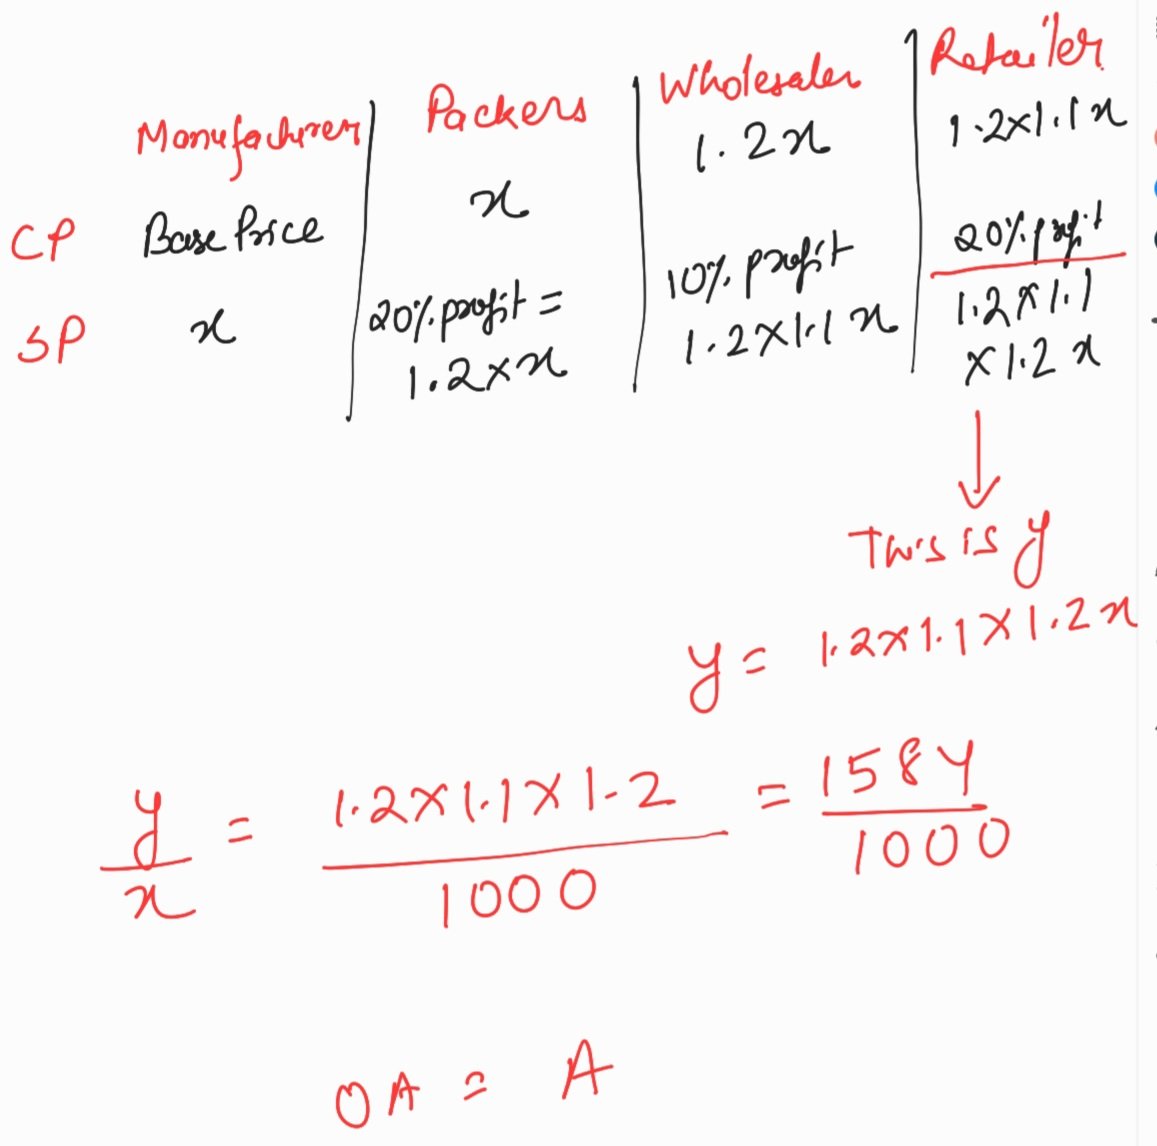 Manufacturer Packers Wholesaler Retailer
CP Base Price x 1.2x 1.2x1.1x
SP x 20% profit = 10% profit 20% profit
1.2×x 1.2×1.1x 1.2×1.1
×1.2x
This is y
y = 1.2×1.1×1.2x
y/x = 1.2×1.1×1.2/1000 = 1584/1000
OA = A